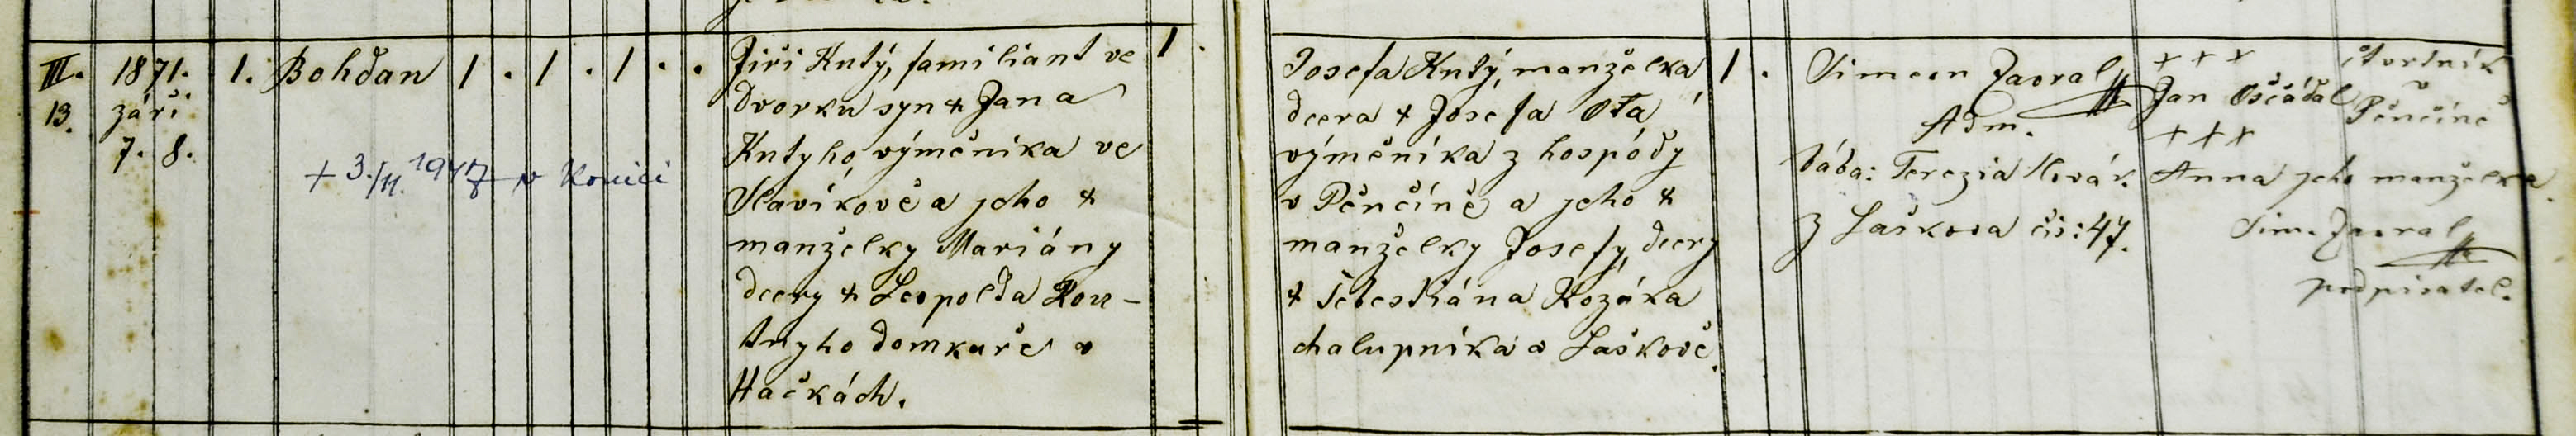 III. 1871. 1. Bohdan 1 . 1 . 1 . .
13. září
7. 8.
+ 3./11. 1947 v Konici
Jiří Knty, familiant ve 1 .
Dvorku syn + Jana
Kntyho, výměníka ve
Slavíkově a jeho +
manželky Mariány
dcery + Leopolda Kou-
tnyho domkaře v
Hačkách.
Josefa Knty, manželka, 1 .
dcera + Josefa Ota
výměníka z hospody
v Pěnčíně a jeho +
manželky Josefy, dcery
+ Šebestiána Kozáka
chalupníka v Laškově.
Simeon Zaoral
Adm.
bába: Terezia Novák.
z Laškova čís: 47.
+ + + čtvrtník
Jan Oščádal v Pěnčíně
+ + +
Anna jeho manželka.
Sim. Zaoral
podpisatel.